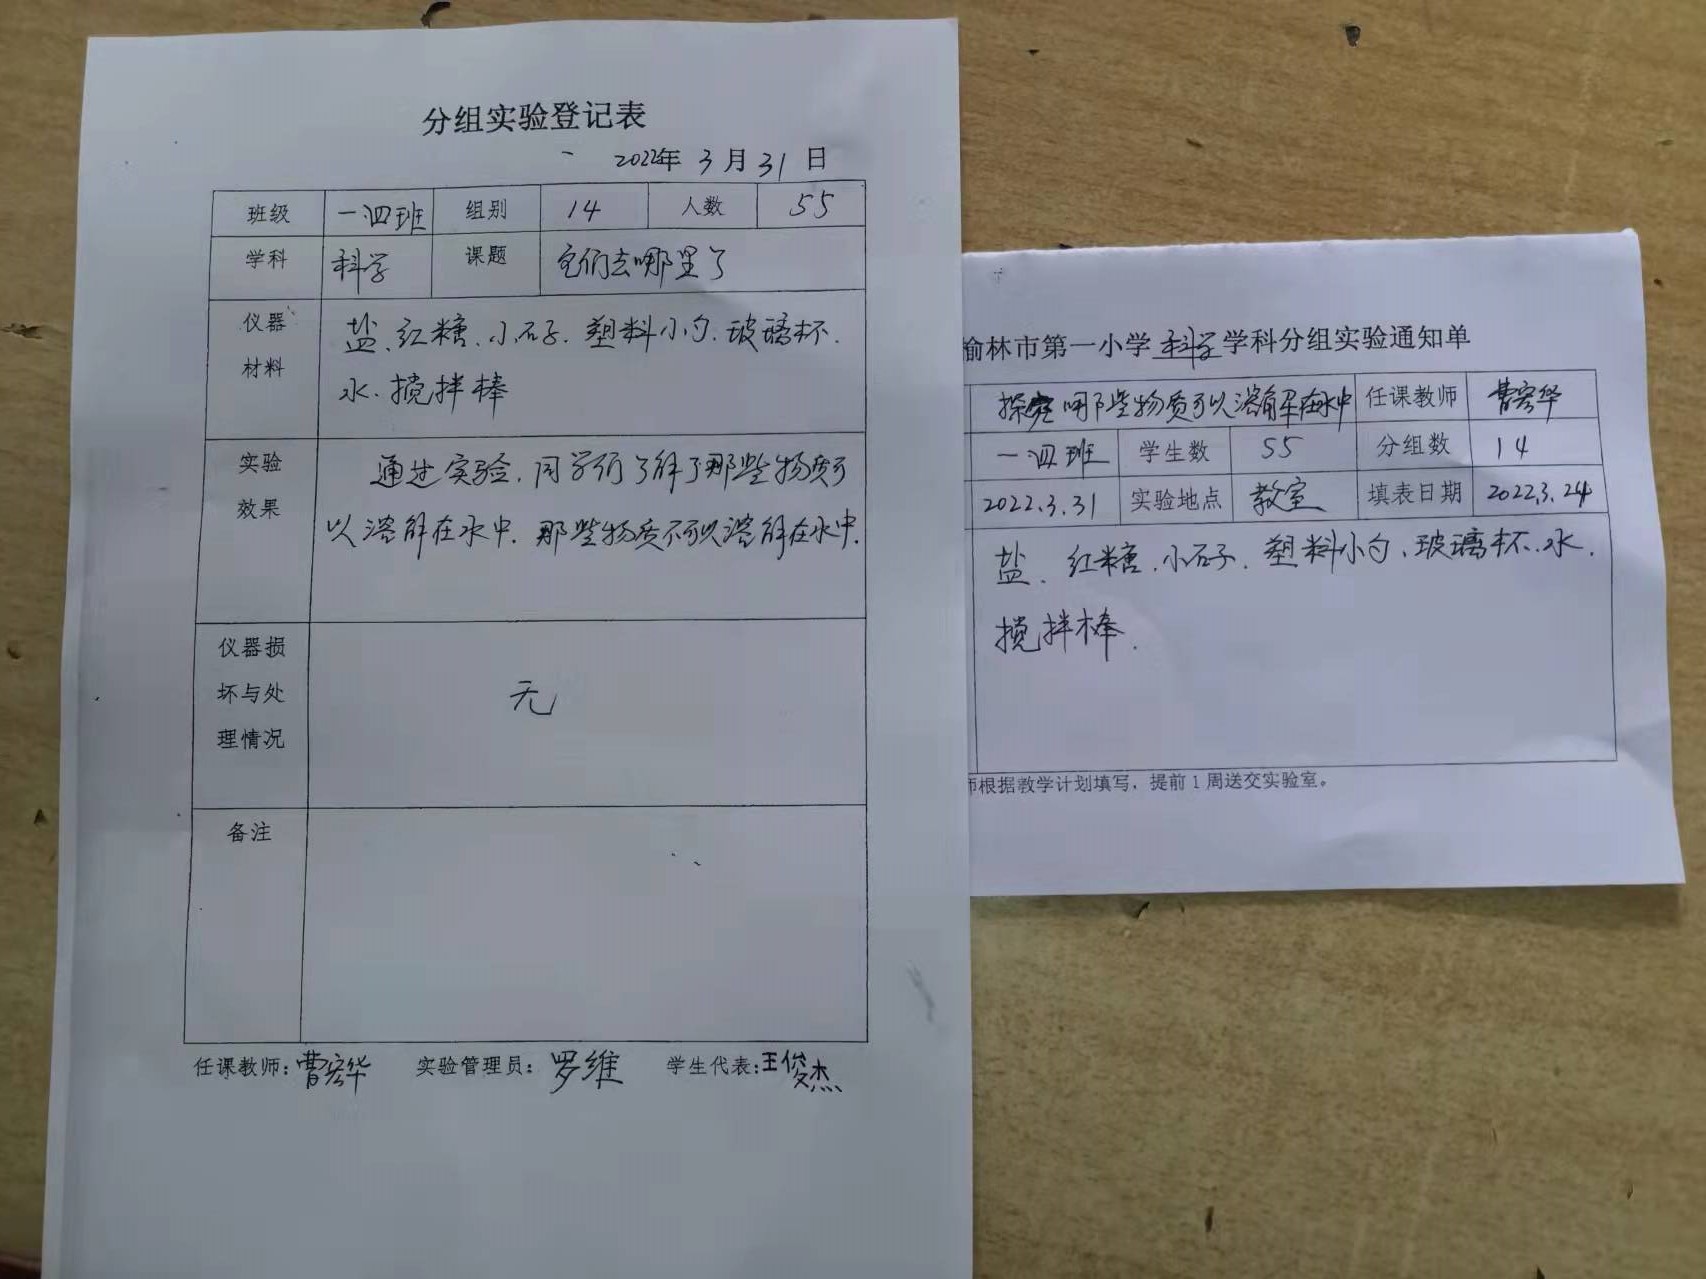 分组实验登记表
2022年 3 月 31 日
班级 一四班 组别 14 人数 55
学科 科学 课题 它们去哪里了
仪器 盐、红糖、小石子、塑料小勺、玻璃杯、
材料 水、搅拌棒
实验 通过实验,同学们了解了那些物质可
效果 以溶解在水中,那些物质不可以溶解在水中.
仪器损
坏与处 无
理情况
备注
任课教师:曹宏华 实验管理员:罗维 学生代表:王俊杰
榆林市第一小学 科学 学科分组实验通知单
探究哪些物质可以溶解在水中 任课教师 曹宏华
一四班 学生数 55 分组数 14
2022.3.31 实验地点 教室 填表日期 2022.3.24
盐、红糖、小石子、塑料小勺、玻璃杯、水、
搅拌棒.
师根据教学计划填写,提前1周送交实验室。